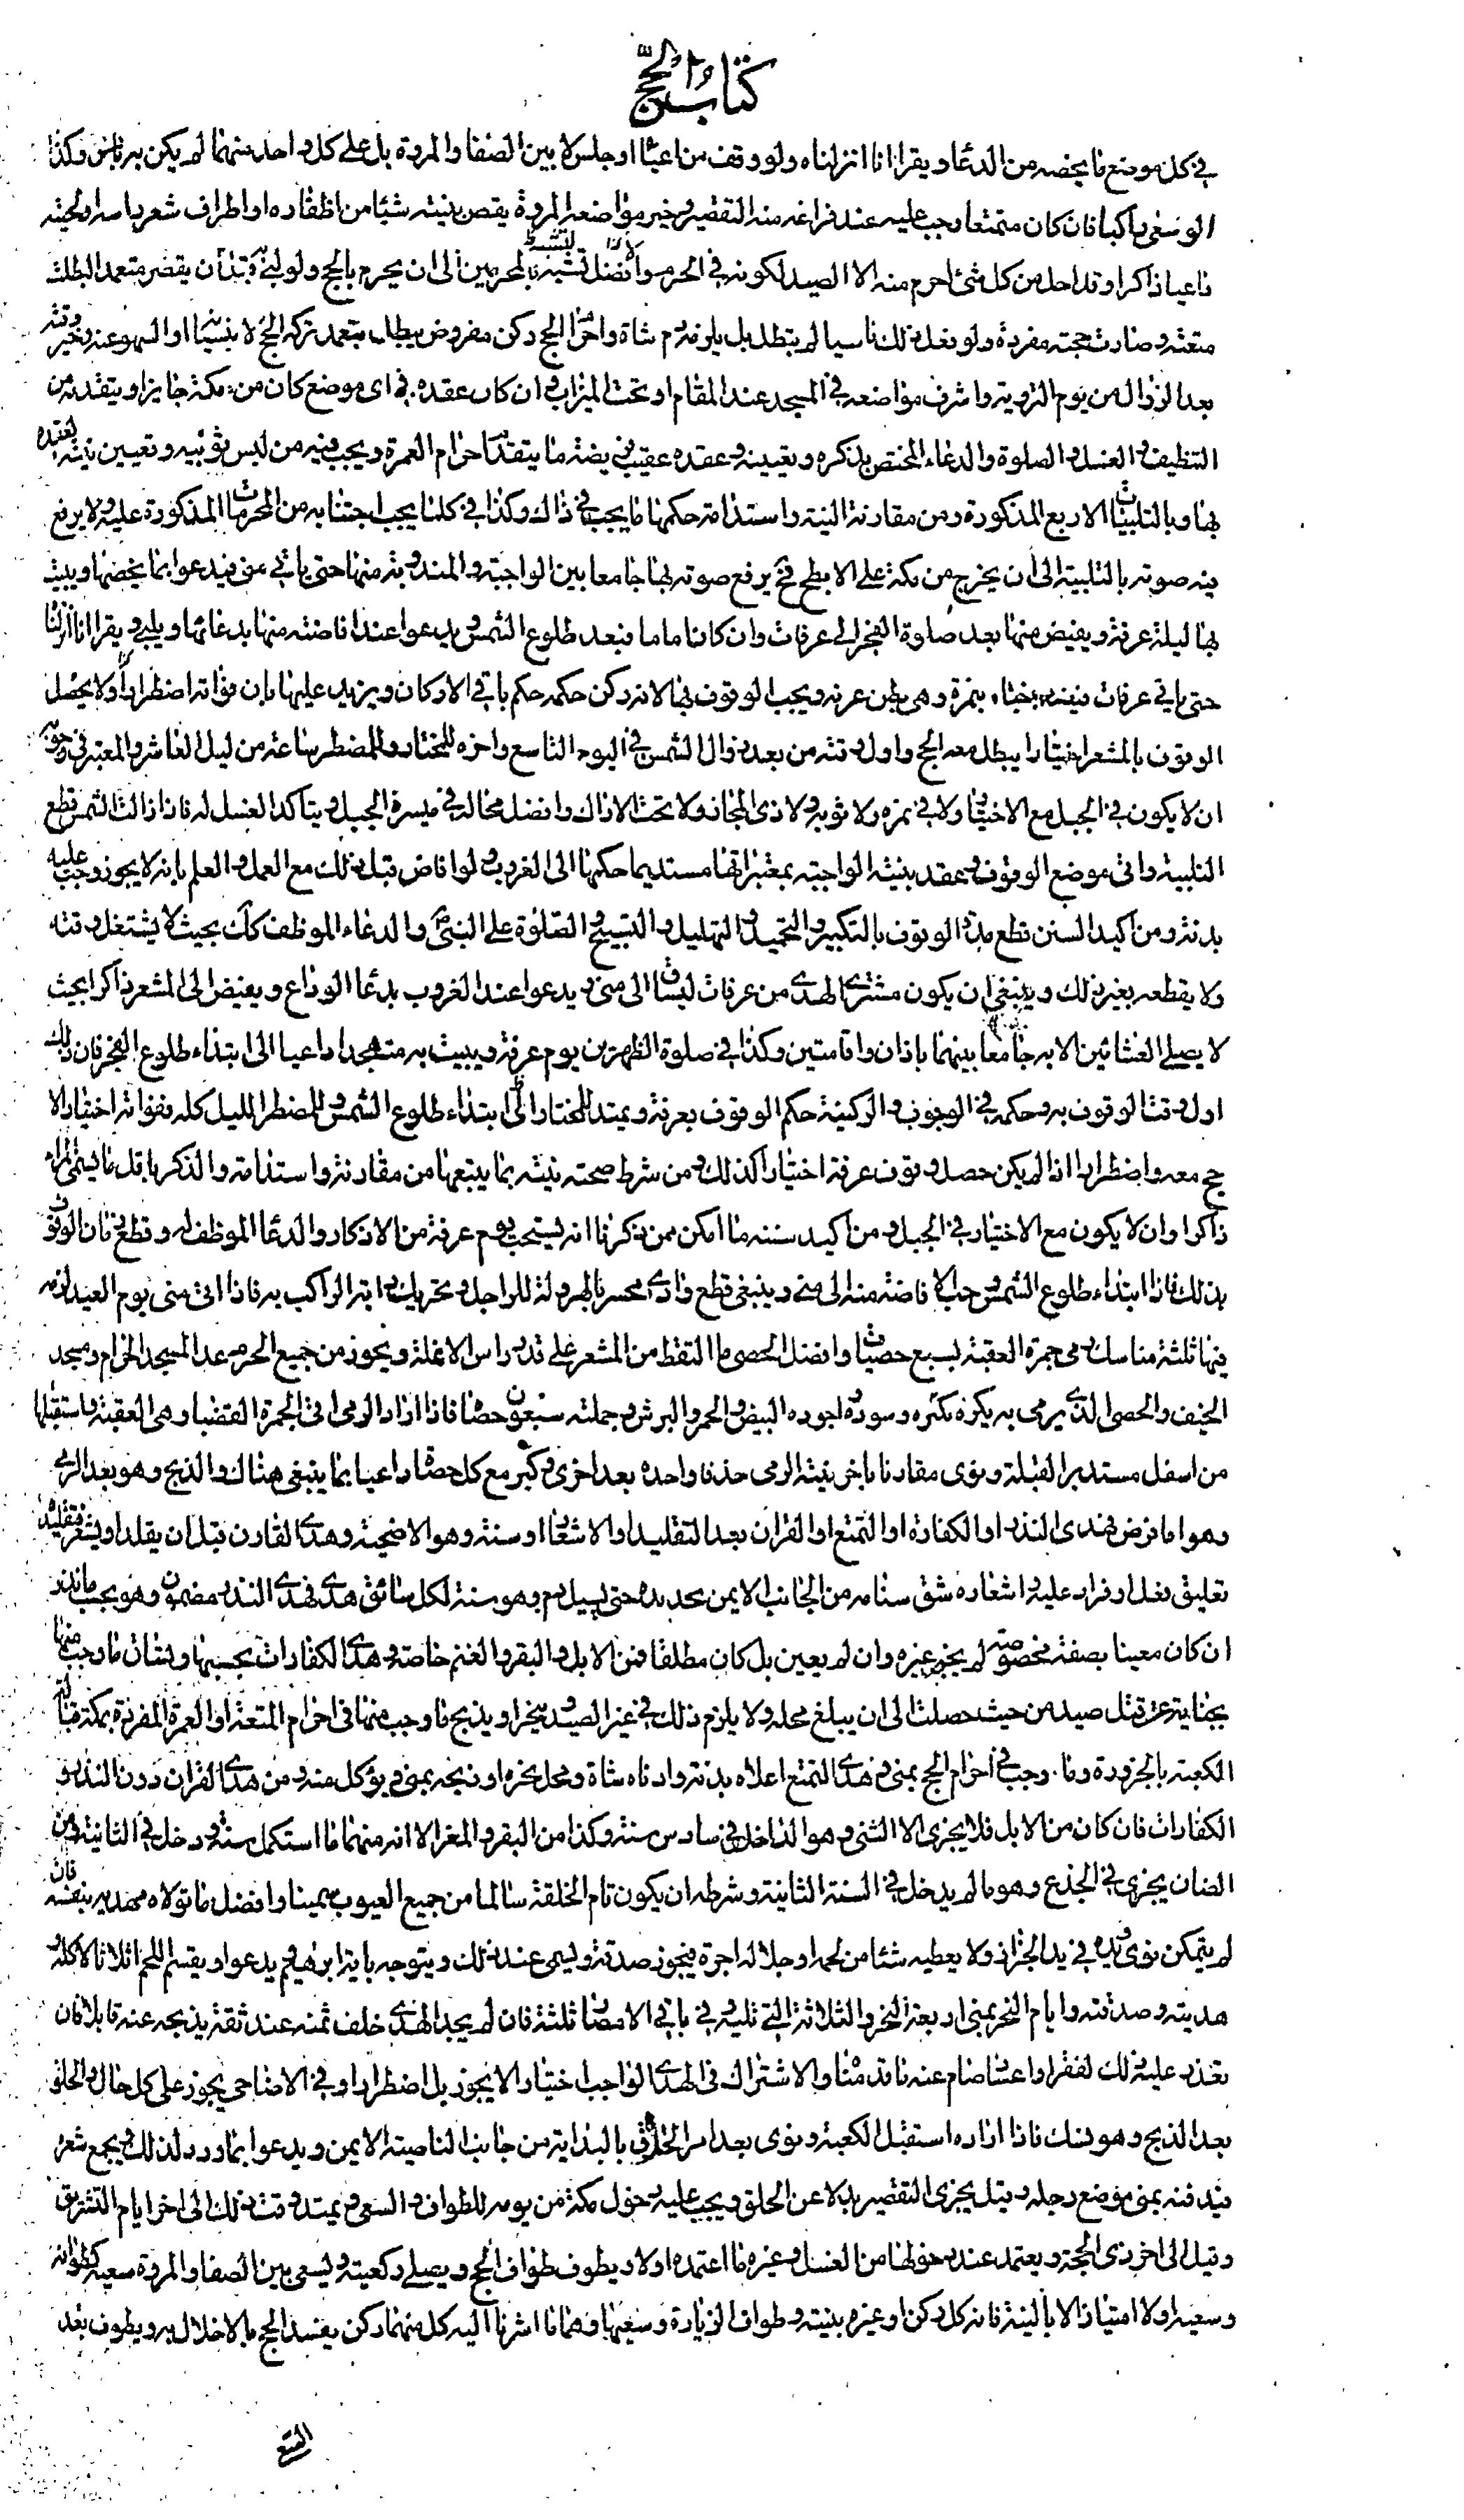 كتاب الحج
في كل موضع ما يخصه من الدعاء ويقرا انا انزلناه ولو وقف من اعياء او جلس لا بين الصفا والمروة بل على كل واحد منهما لم يكن به باس وكذا
لو سعى راكبا فان كان متمتعا وجب عليه عند فراغه منه التقصير وخير مواضعه المروة يقص بنيته شيئا من اظفاره او اطراف شعر راسه او لحيته
داعيا ذاكرا وقد احل من كل شئ احرم منه الا الصيد لكونه في الحرم والافضل تشبهه بالمحرمين الى ان يحرم بالحج ولو لبى قبل ان يقصر متعمدا بطلت
متعته وصارت حجته مفردة ولو فعل ذلك ناسيا لم يبطل بل يلزمه دم شاة واحرام الحج ركن مفروض يبطل بتعمد تركه الحج لا بنسيانه او السهو عنه وخير وقته
بعد الزوال من يوم التروية واشرف مواضعه في المسجد عند المقام او تحت الميزاب وان كان عقده في اى موضع كان من مكة جايزا ويتقدمه من
التنظيف والغسل والصلوة والدعاء المختص بذكره وتعيينه وعقده عقيب فريضة ما يتقدم احرام العمرة ويجب فيه من لبس ثوبيه وتعيين نيته لعقده
بها وبالتلبيات الاربع المذكورة ومن مقارنة النية واستدامة حكمها ما يجب في ذاك وكذا في كلما يجب اجتنابه من المحرمات المذكورة عليه ولا يرفع
فيه صوته بالتلبية الى ان يخرج من مكة على الابطح فح يرفع صوته بها جامعا بين الواجبة والمندوبة منها حتى ياتي منى فيدعوا بما يخصها ويبيت
بها ليلة عرفة ويفيض منها بعد صلوة الفجر الى عرفات وان كان اماما فبعد طلوع الشمس ويدعوا عند افاضته منها بدعائها ويلبي ويقرا انا انزلنا
حتى ياتي عرفات فيضرب خباه بنمرة وهي بطن عرنه ويجب الوقوف بها لانه ركن حكمه حكم باقي الاركان ويزيد عليها بان فواته اضطرارا ولا يحصل
الوقوف بالمشعر اختيارا يبطل معه الحج واول وقته من بعد زوال الشمس في اليوم التاسع واخره للمختار وللمضطر ساعة من ليل العاشر والمعتبر في
ان لا يكون في الجبل مع الاختيار ولا في نمره ولا ثويه ولا ذى المجاز ولا تحت الاراك وافضل محاله في ميسرة الجبل ويتاكد الغسل له فاذا زالت الشمس قطع
التلبية واتى موضع الوقوف وعقد بنيته الواجبة بمعتبراتها مستديما حكمها الى الغروب ولو افاض قبل ذلك مع العمل والعلم بانه لا يجوز وجب عليه
بدنة ومن اكيد السنن قطع مدة الوقوف بالتكبير والتحميد والتهليل والتسبيح والصلوة على النبي والدعاء الموظف كك بحيث لا يشتغل وقته
ولا يقطعه بغير ذلك وينبغي ان يكون مشترى الهدى من عرفات ليساق الى منى ويدعوا عند الغروب بدعاء الوداع ويفيض الى المشعر ذاكرا بحيث
لا يصلي العشائين الا به جامعا بينهما باذان واقامتين وكذا في صلوة الظهرين يوم عرفة ويبيت به متهجدا داعيا الى ابتداء طلوع الفجر فان ذلك
اول وقت الوقوف به وحكمه في الوجوب والركنية حكم الوقوف بعرفة ويمتد للمختار الى ابتداء طلوع الشمس وللمضطر الليل كله بفواته اختيارا لا
حج معه واضطرارا اذا لم يكن حصل وقوف عرفة اختيارا كذلك ومن شرط صحته نيته بما يتبعها من مقارنة واستدامة والذكر باقل ما يسمى المرء
ذاكرا وان لا يكون مع الاختيار في الجبل ومن اكيد سننه ما امكن ممن ذكرنا انه يستحب يوم عرفة من الاذكار والدعاء الموظف له وقطع زمان الوقوف
بذلك فاذا ابتداء طلوع الشمس وجب الافاضة منه الى منى وينبغى قطع وادى محسر بالهرولة للراجل وتحريك دابة الراكب به فاذا اتى منى يوم العيد لزمه
فيها ثلثة مناسك رمى جمرة العقبة بسبع حصيات وافضل الحصى ما التقط من المشعر على قدر راس الانملة ويجوز من جميع الحرم عدا المسجد الحرام ومسجد
الخيف والحصى الذي يرمى به يكره تكسره وسوده واجوده البيض والحمر والبرش وجملته سبعون حصاة فاذا اراد الرمى اتى الجمرة القصيا وهى العقبة واستقبلها
من اسفل مستدبر القبلة ونوى مقارنا باخر نيته الرمى حذفا واحدة بعد اخرى وكبر مع كل حصاة داعيا بما ينبغى هناك والذبح وهو بعد الرمى
وهو اما فرض فهدى النذر او الكفارة او التمتع او القران بعد التقليد او الاشعار او سنة وهو الاضحية وهدى القارن قبل ان يقلد او يشعر فتقليده
تعليق نعل او مزادة عليه واشعاره شق سنامه من الجانب الايمن بحديدة حتى يسيل دم وهو سنة لكل سائق هدى فهدى النذر مضمون وهو بحسب ما نذر
ان كان معينا بصفة مخصوصة لم يجز غيره وان لم يعين بل كان مطلقا فمن الابل والبقر والغنم خاصة وهدى الكفارات بحسبها ويساق ما وجب منها
بجناية عن قتل صيد من حيث حصلت الى ان يبلغ محله ولا يلزم ذلك في غير الصيد وينحر او يذبح ما وجب منها في احرام المتعة او العمرة المفردة بمكة قبالة
الكعبة بالحزورة وما وجب في احرام الحج بمنى وهدى التمتع اعلاه بدنة وادناه شاة ومحل نحره او ذبحه بمنى ويؤكل منه ومن هدى القران دون النذر و
الكفارات فان كان من الابل فلا يجزى الا الثنى وهو الداخل في سادس سنة وكذا من البقر والمعز الا انه منهما ما استكمل سنة ودخل في الثانية ومن
الضان يجزى في الجذع وهو ما لم يدخل في السنة الثانية وشرطه ان يكون تام الخلقة سالما من جميع العيوب سمينا وافضل ما تولاه مهديه بنفسه فان
لم يتمكن نوى ويده في يد الجزار ولا يعطيه شئا من لحمه او جلاله اجرة فيجوز صدقة ويسمى عند ذلك ويتوجه باية ابرهيم ويدعوا ويقسم اللحم اثلاثا لاكله و
هديته وصدقته وايام النحر بمنى اربعة النحر والثلاثة التي تليه وفي باقي الامصار ثلثة فان لم يجد الهدى خلف ثمنه عند ثقة يذبحه عنه قابلا فان
تعذر عليه ذلك لفقر او اعسار صام عنه ما قدمناه والاشتراك في الهدى الواجب اختيارا لا يجوز بل اضطرارا وفي الاضاحى يجوز على كل حال والحلق
بعد الذبح وهو نسك فاذا اراده استقبل الكعبة ونوى بعد امر الحلاق بالبداية من جانب الناصية الايمن ويدعوا بما ورد لذلك ويجمع شعره
فيدفنه بمنى موضع رحله وقيل يجزى التقصير بدلا عن الحلق ويجب عليه دخول مكة من يومه للطواف والسعى ويمتد وقت ذلك الى اخر ايام التشريق
وقيل الى اخر ذى الحجة ويعتمد عند دخولها من الغسل وغيره ما اعتمده اولا ويطوف طواف الحج ويصلى ركعيته ويسعى بين الصفا والمروة سعيه كطوافه
وسعيه اولا امتياز الا بالنية فانه كل ركن او غيره بنيته وطواف الزيارة وسعيها وهما ما اشرنا اليه كل منهما ركن يفسد الحج بالاخلال به ويطوف بعد
المتمتع